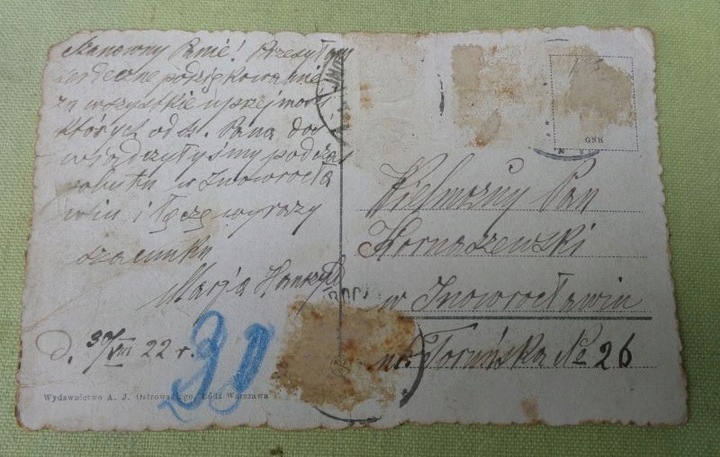 Szanowny Panie! Przesyłam
serdeczne podziękowanie
za wszystkie uprzejmości
których od Sz. Pana doś
wiadczyłyśmy podczas
pobytu w Inowrocła
wiu i łączę wyrazy
szacunku
Marja
D. 30/VIII 22 r.
30
Wydawnictwo A. J. Ostrowskiego, Łódź Warszawa
GNH
Wielmożny Pan
Kornaszewski
w Inowrocławiu
ul. Toruńska No 26